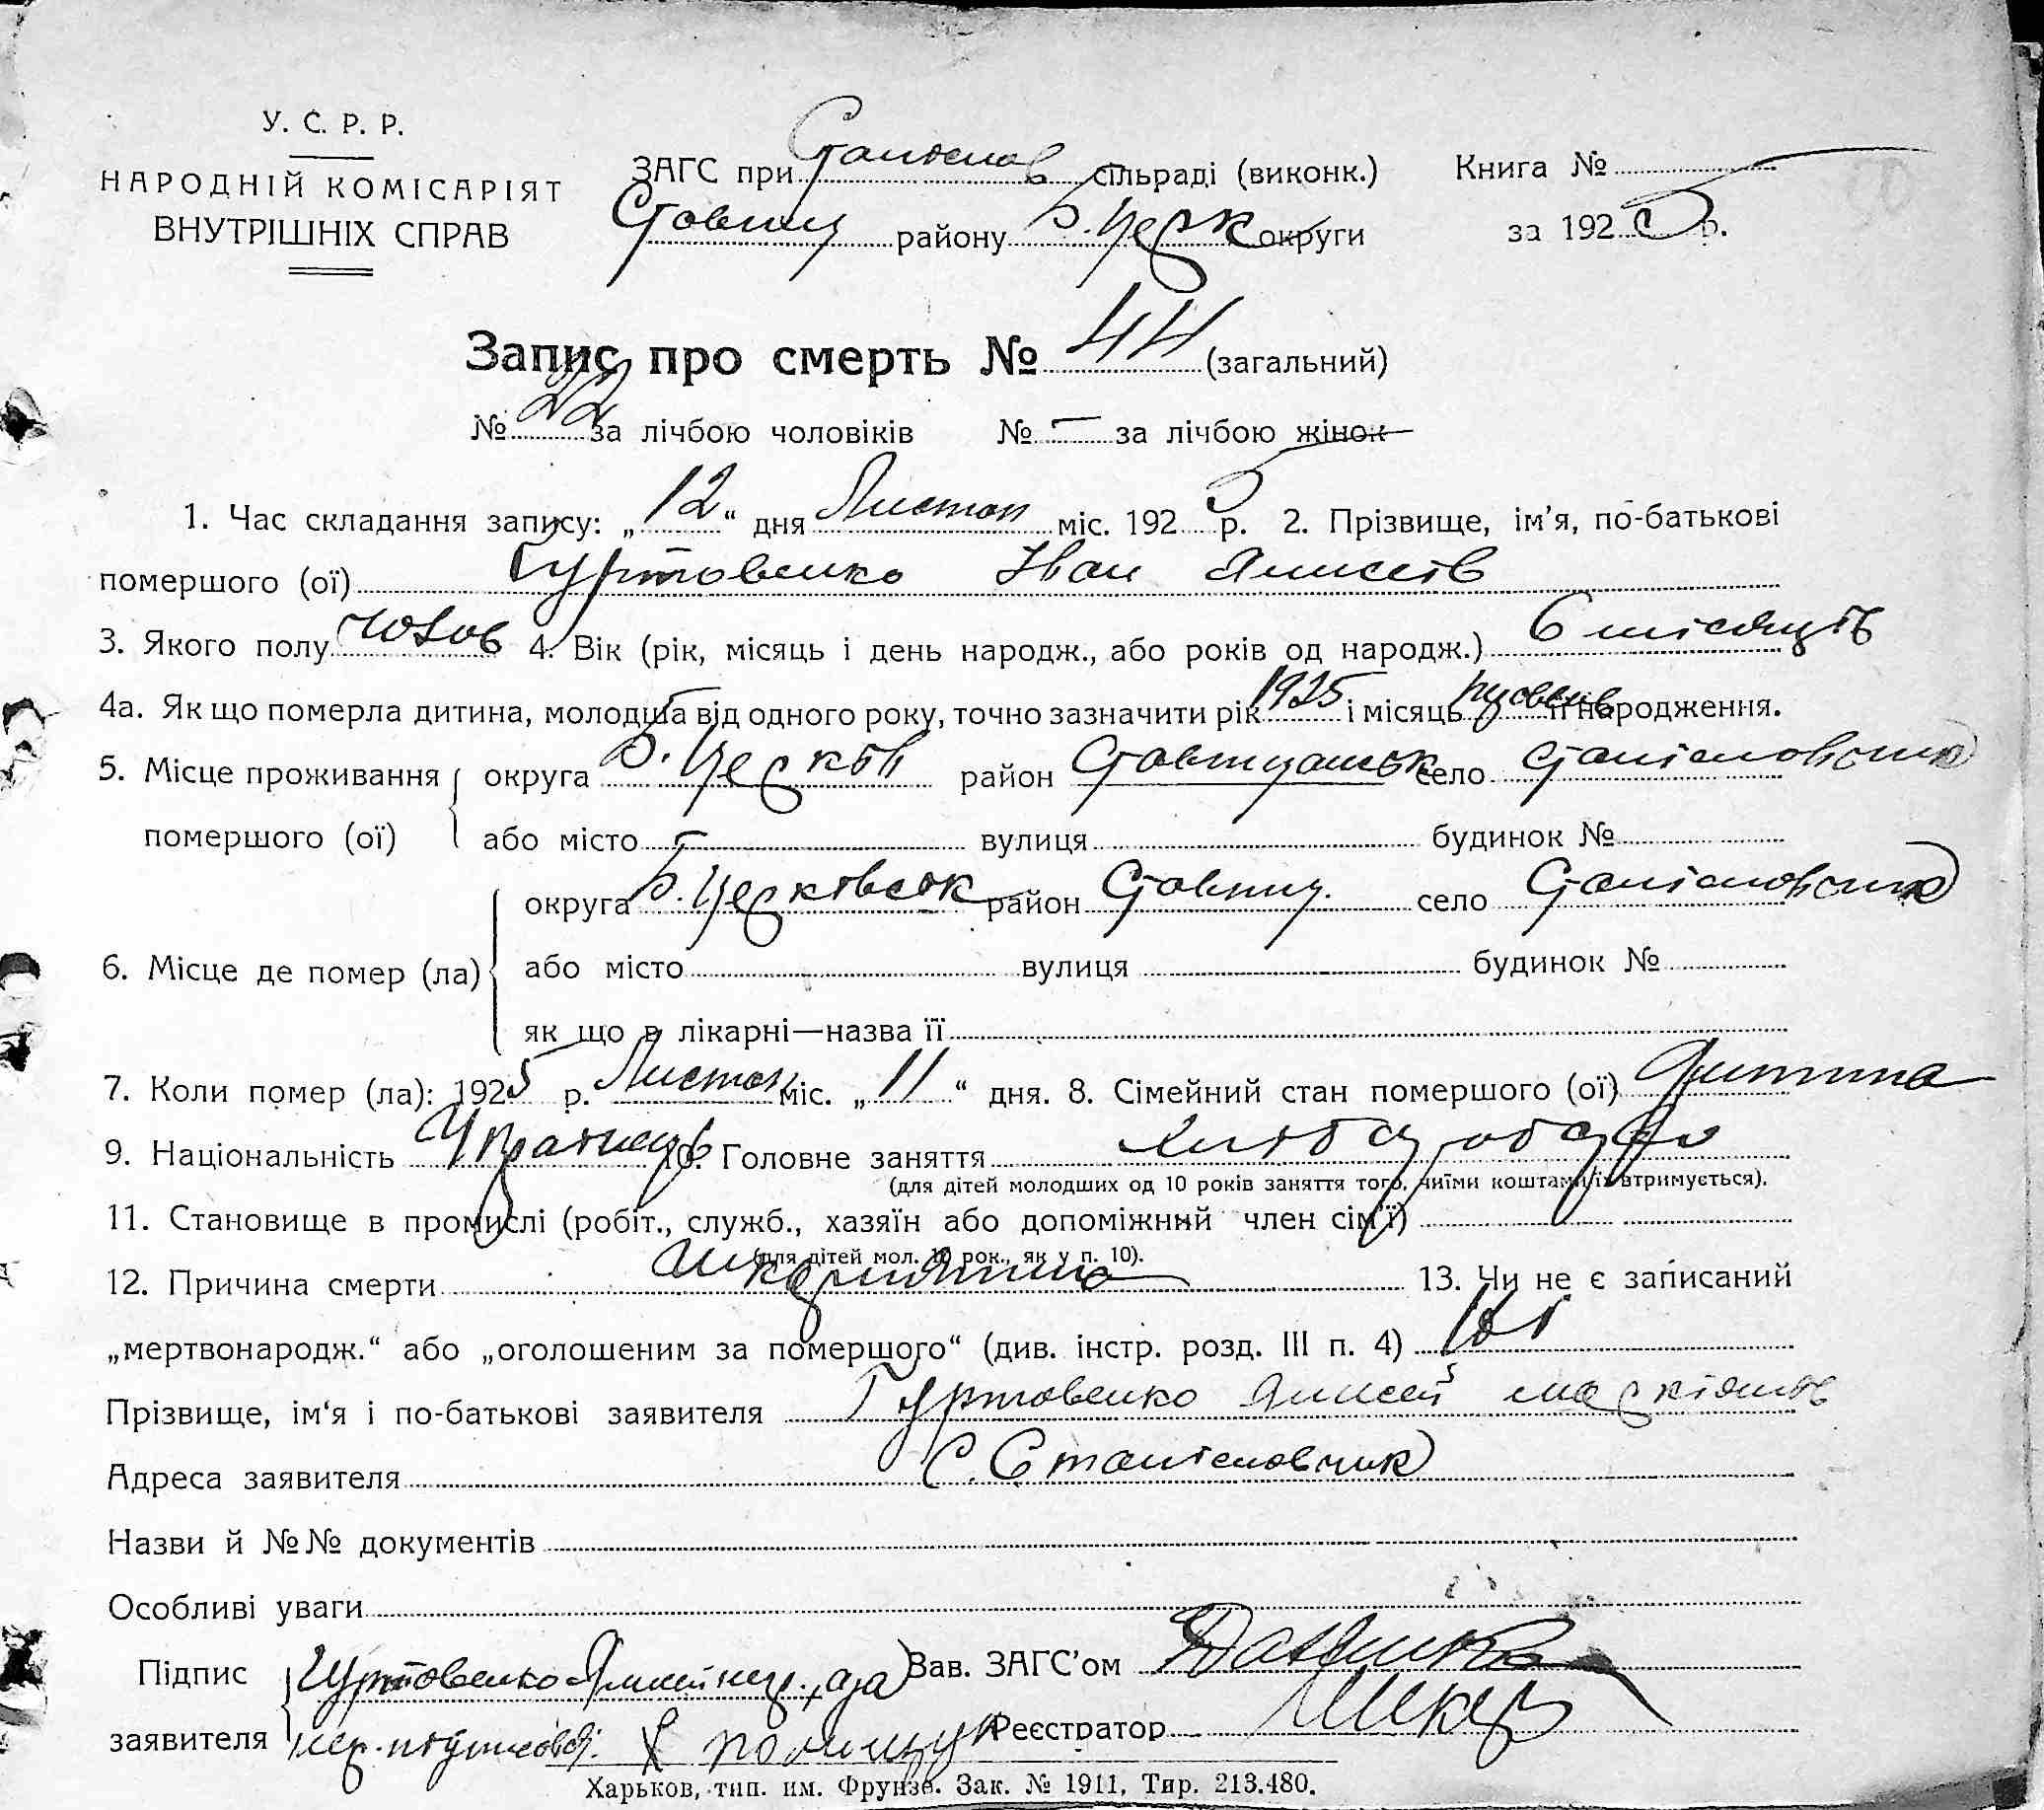 У. С. Р. Р.
НАРОДНІЙ КОМІСАРІЯТ
ВНУТРІШНІХ СПРАВ
ЗАГС при Станіслав сільраді (виконк.)
Ставищ району Б. Церк округи
Книга №
за 1925 р.
Запис про смерть № 44 (загальний)
№ 22 за лічбою чоловіків № — за лічбою жінок
1. Час складання запису: „12“ дня Листоп міс. 1925 р. 2. Прізвище, ім'я, по-батькові
помершого (ої) Гуртовенко Іван
3. Якого полу чолов 4. Вік (рік, місяць і день народж., або років од народж.) 6 місяців
4а. Як що померла дитина, молодша від одного року, точно зазначити рік 1925 і місяць її народження.
5. Місце проживання округа Б. Церків район Ставищанськ село Станіславчик
помершого (ої) або місто — вулиця будинок №
6. Місце де помер (ла) округа Б. Церківськ район Ставищ. село Станіславчик
або місто вулиця будинок №
як що в лікарні—назва її
7. Коли помер (ла): 1925 р. Листоп міс. „11“ дня. 8. Сімейний стан помершого (ої) Дитина
9. Національність Українець 10. Головне заняття хлібороб
(для дітей молодших од 10 років заняття того, чиїми коштами їх втримується).
11. Становище в промислі (робіт., служб., хазяїн або допоміжний член сім'ї)
(для дітей мол. 10 рок., як у п. 10).
12. Причина смерти шкарлятина 13. Чи не є записаний
„мертвонародж.“ або „оголошеним за помершого“ (див. інстр. розд. III п. 4) Ні
Прізвище, ім'я і по-батькові заявителя Гуртовенко
Адреса заявителя С. Станіславчик
Назви й №№ документів
Особливі уваги
Підпис заявителя Гуртовенко
Зав. ЗАГС'ом
Реєстратор
Харьков, тип. им. Фрунзе. Зак. № 1911, Тир. 213.480.